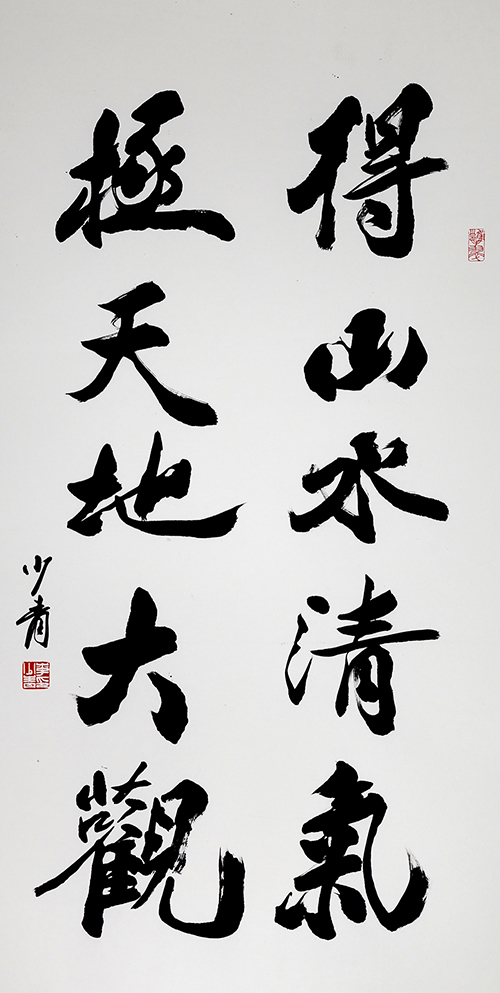 得山水清氣
極天地大觀
少青